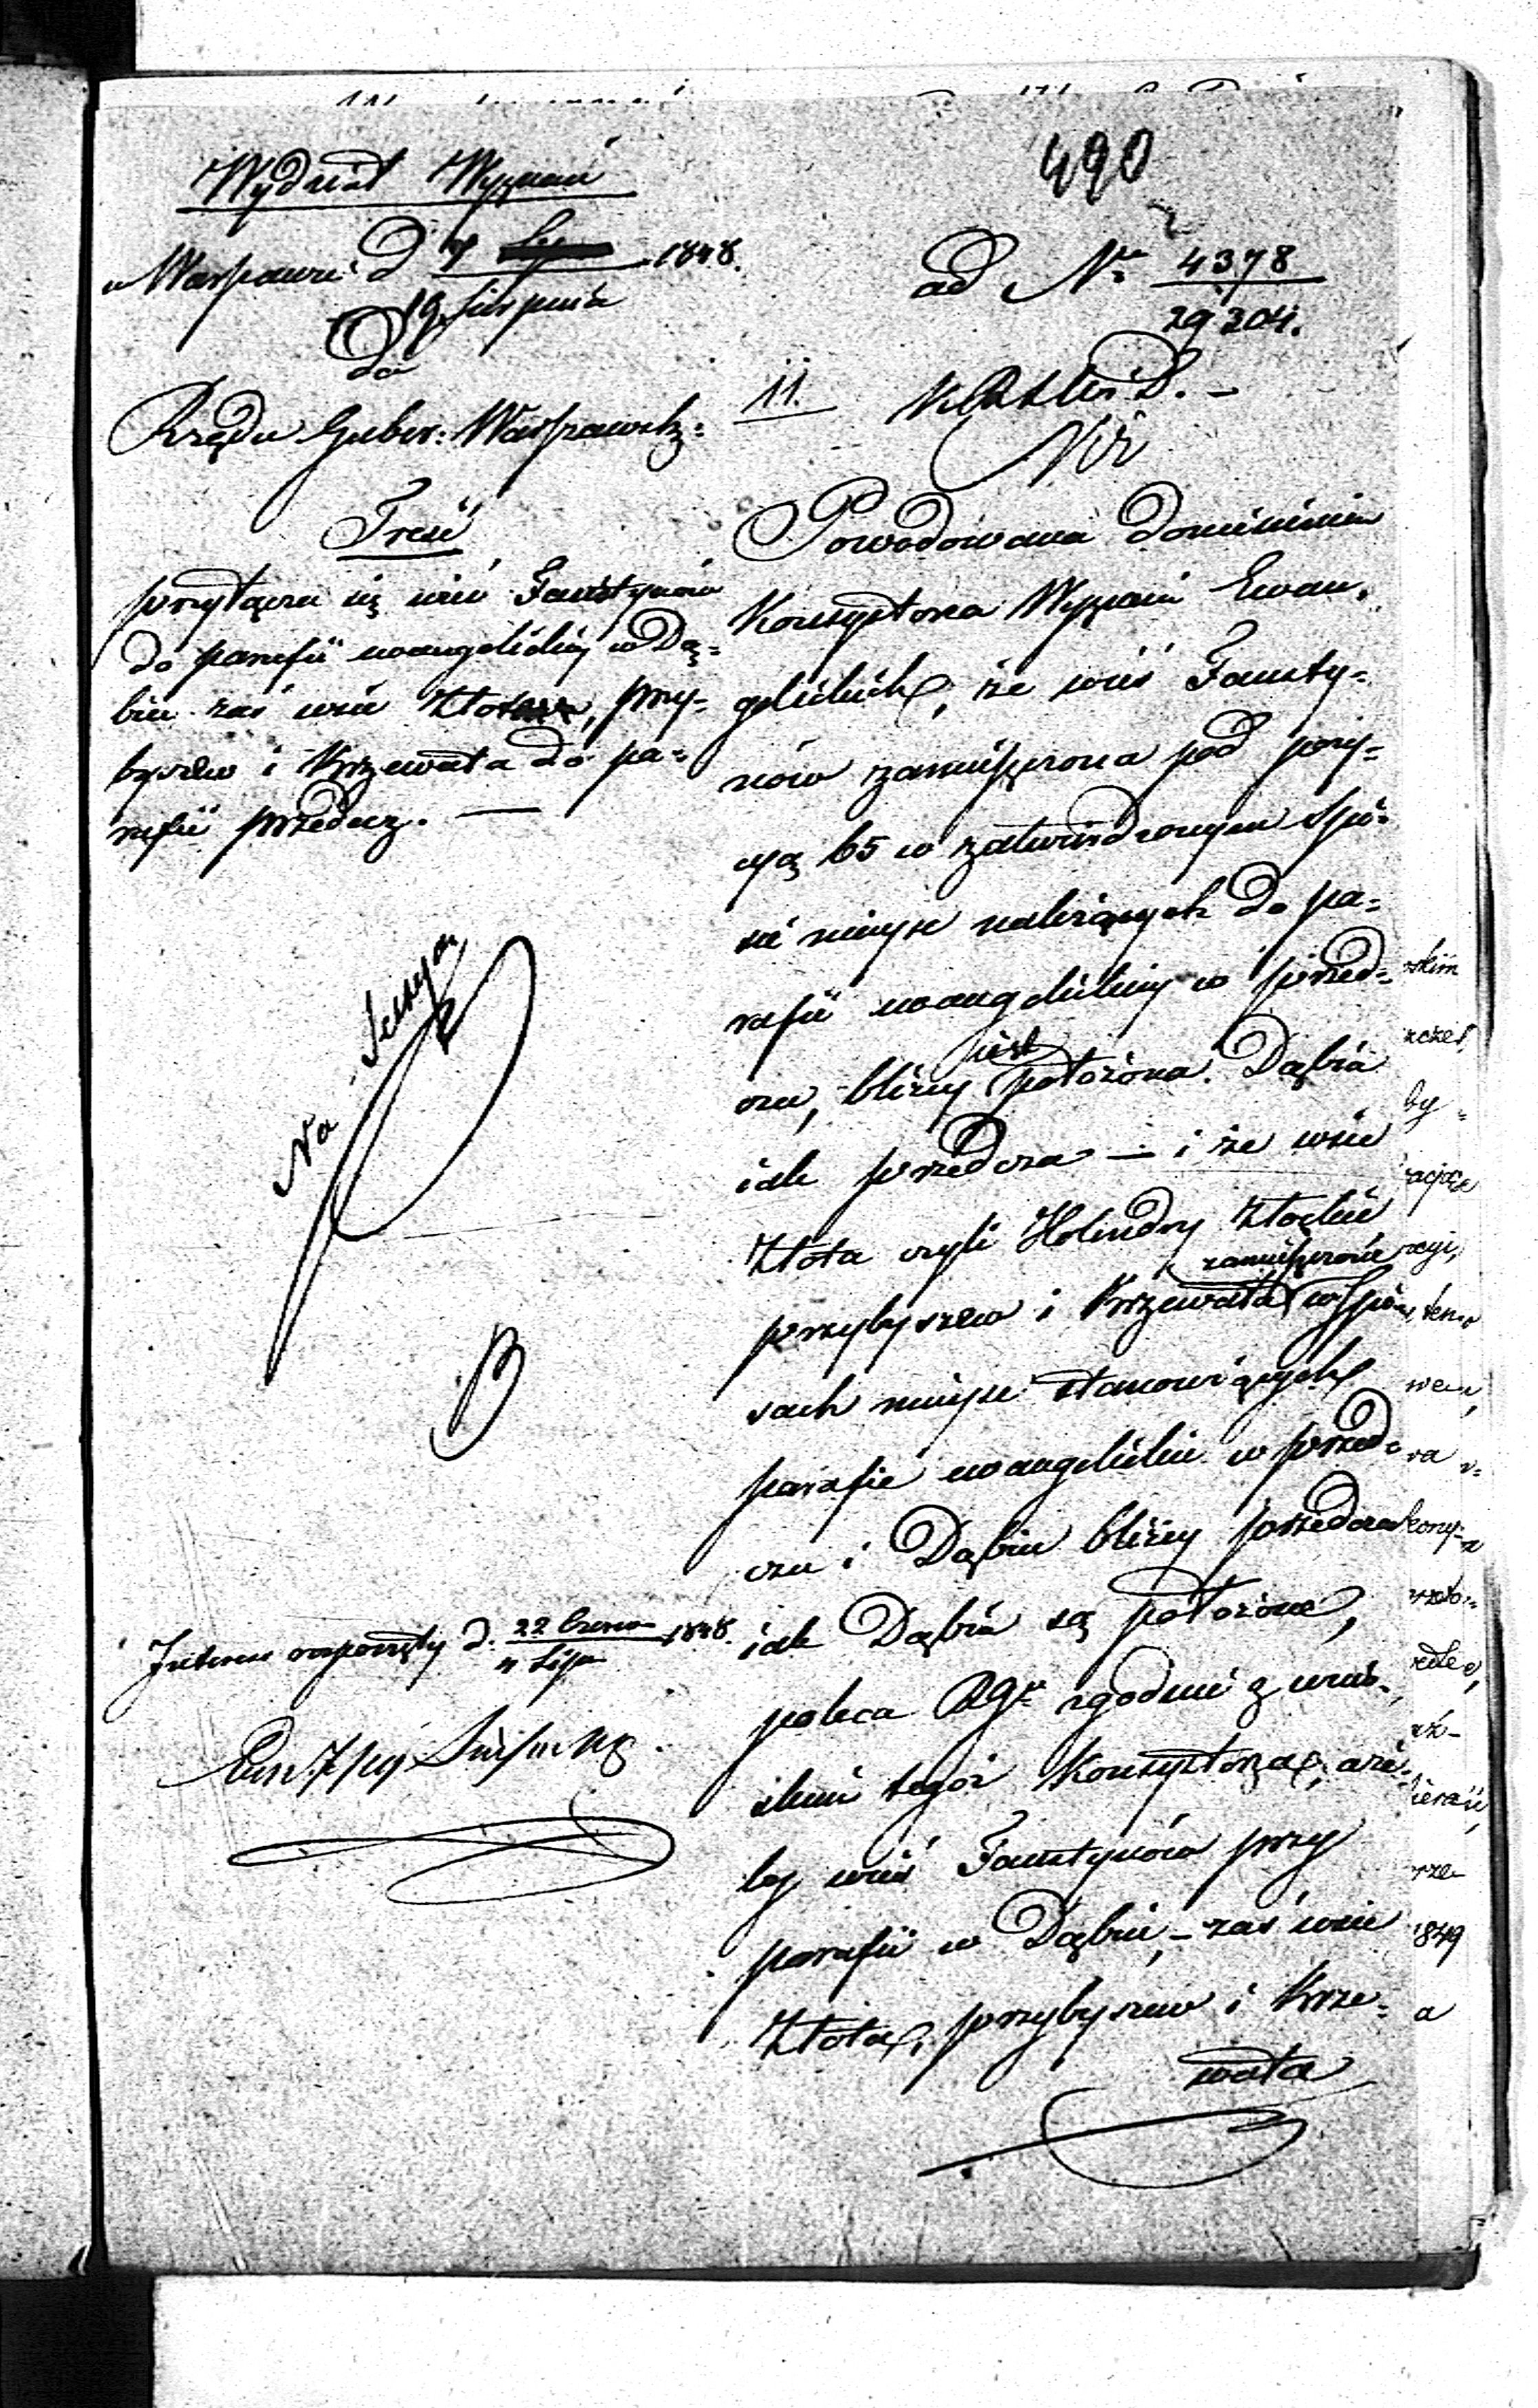 490
Wydział Wyznań
w Warszawie d 7 1848.
19 Sierpnia
Do
Rządu Guber: Warszawsk:
ad Nr 4378
29204.
11.
Treść
przyłącza się wieś Faustynów
do parafii ewangelickiéj w Dą=
biu zaś wsie Złota, Przy=
byszew i Krzewata do pa=
rafii Przedecz. —
Na Sessyą
Interes rozpoczęty d. 22 Czerw 1848.
4 Lip
Powodowana doniesieniem
Konsystorza Wyznań Ewan=
gelickich, że wieś Fausty=
nów zamieszczona pod pozy=
cyą 65 w zatwierdzonym spi=
sie miejsc należących do pa=
rafii ewangelickiéj w Przed=
czu, bliżéj jest położona Dąbia
jak Przedcza — i że wsie
Złota czyli Holendry Złockie
Przybyszew i Krzewata zamieszczone w spi=
sach miejsc stanowiących
parafie ewangelickie w Przed=
czu i Dąbiu bliżéj Przedcza
jak Dąbia są położone,
poleca Rgu zgodnie z wnio=
skiem tegoż Konsystorza, aże=
by wieś Faustynów przy
parafii w Dąbiu, – zaś wsie
Złota, Przybyszew i Krze=
wata
skim
by =
1849
a